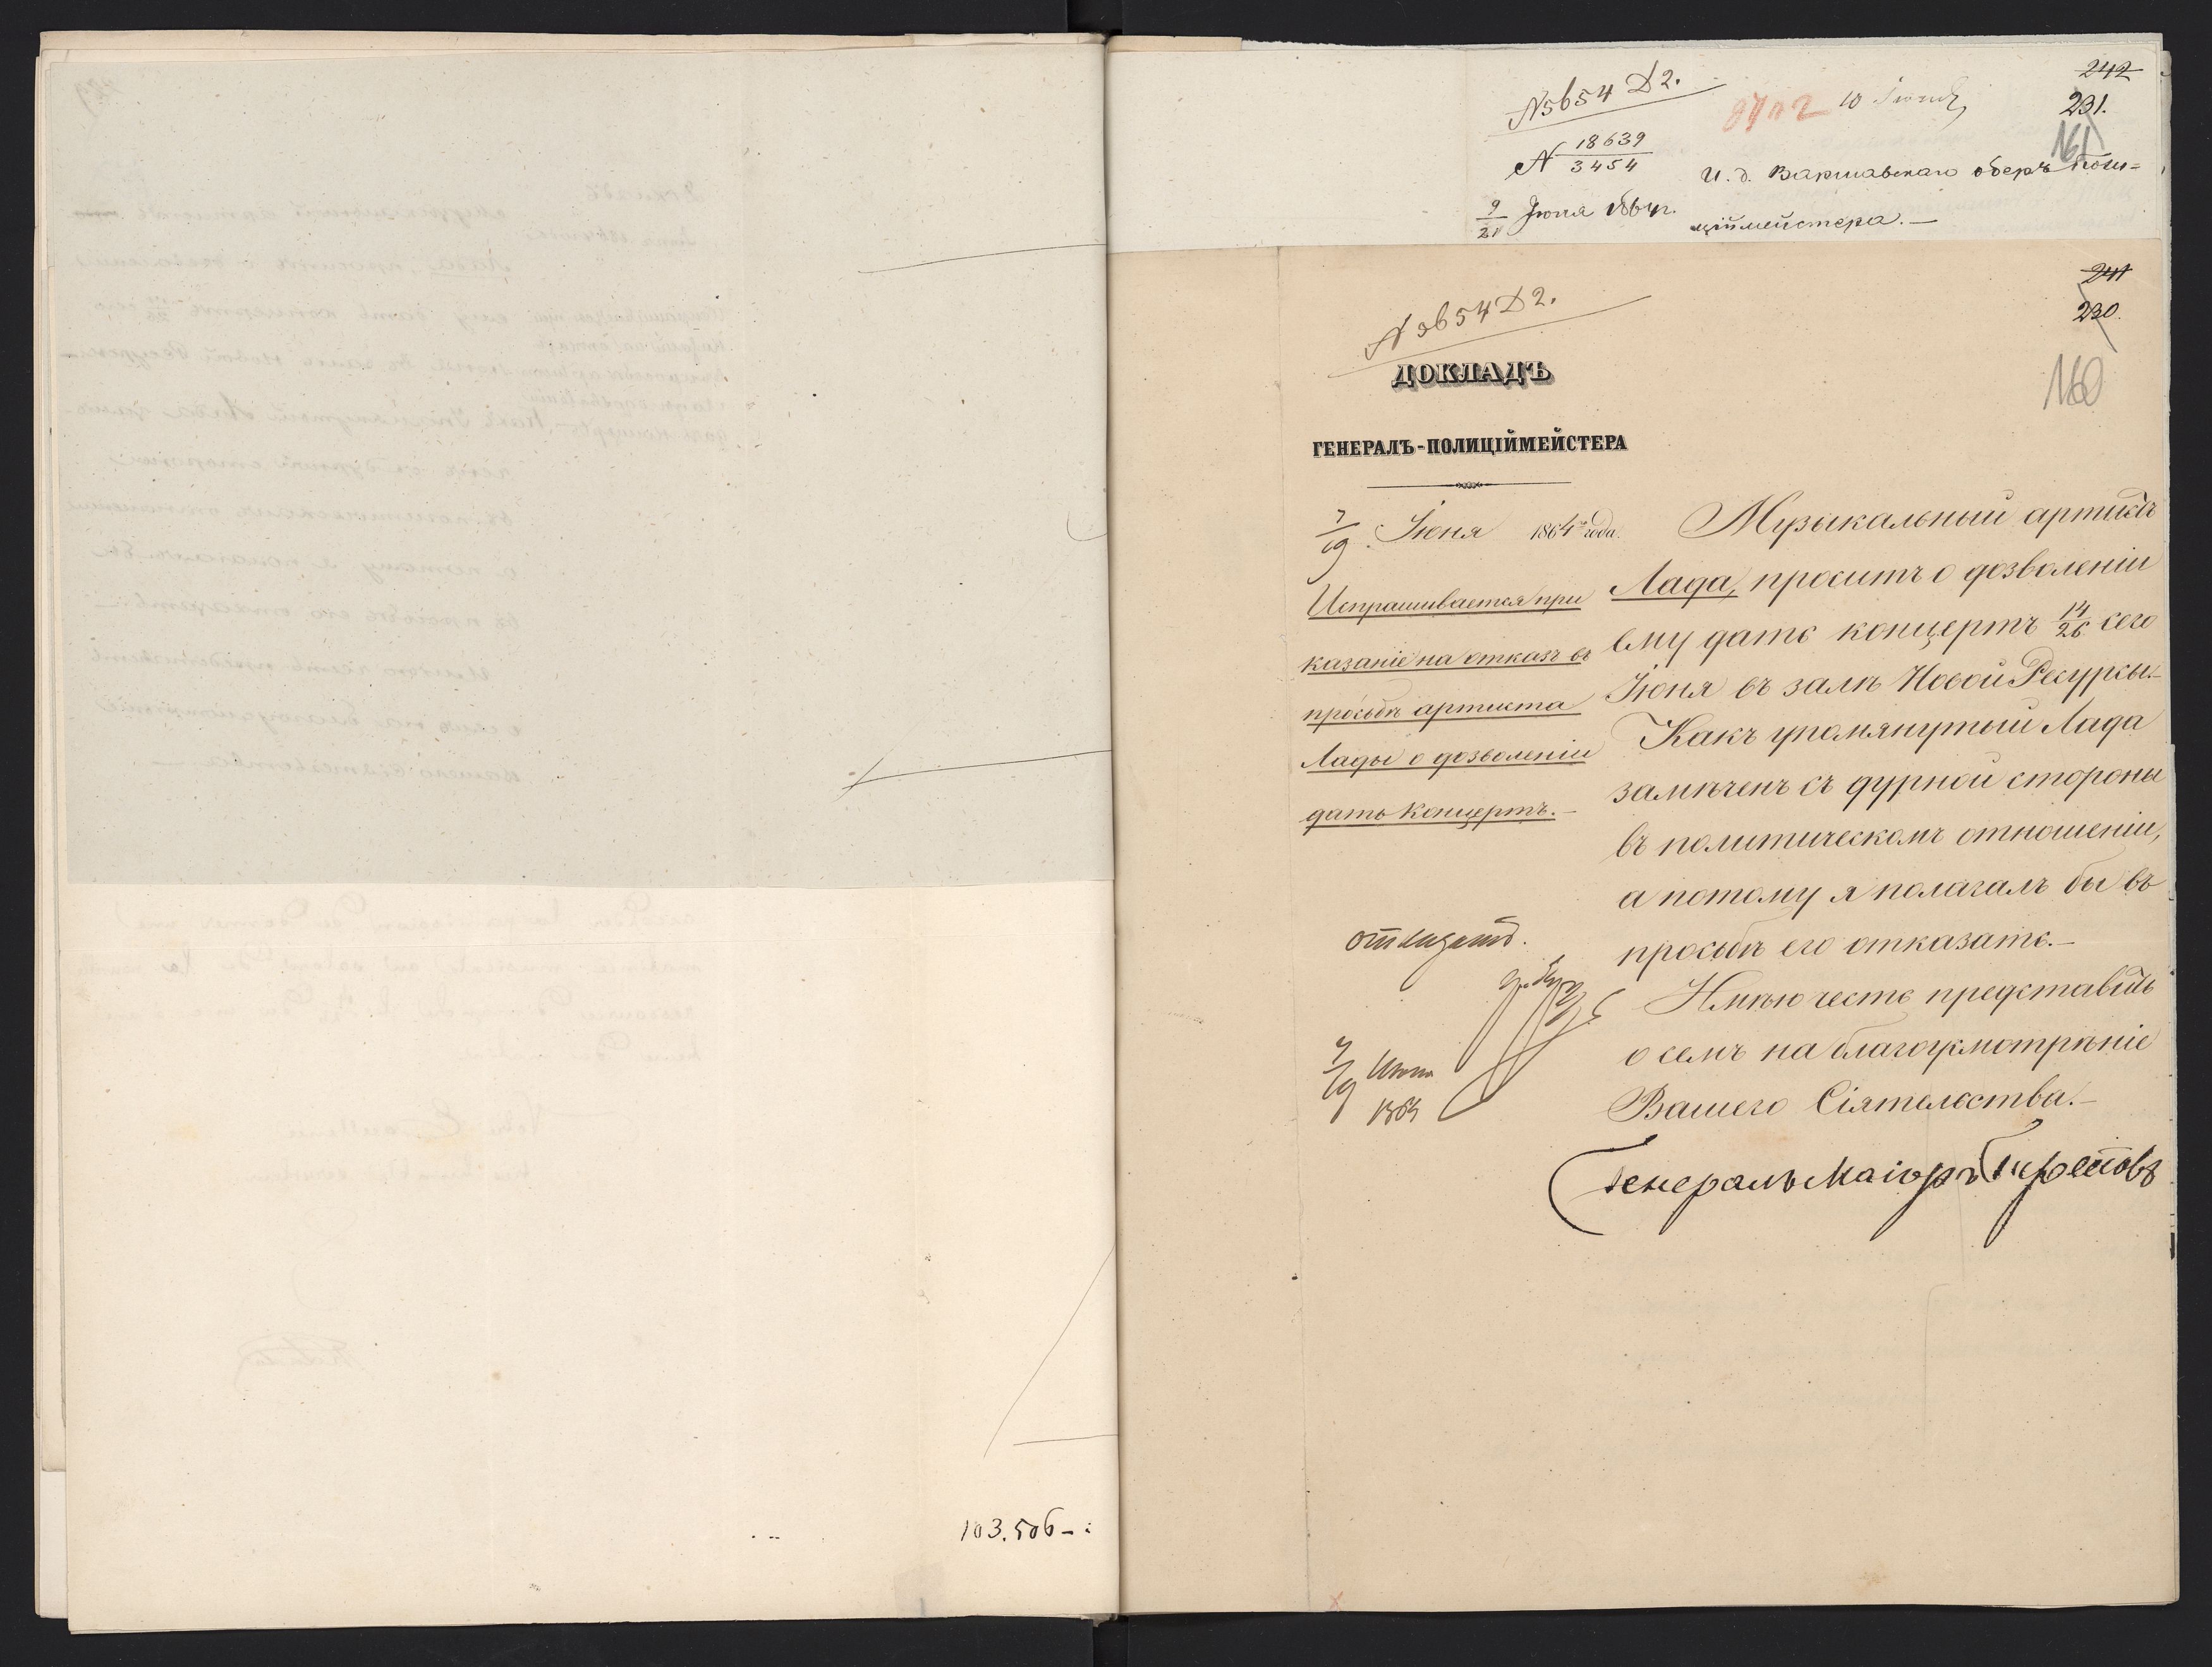 242
231.
161
N5654 Д2.
10 Іюня
N 18639/3454
9/21 Іюня 1864 г.
И. д. Варшавскаго оберъ поли=
ціймейстера.—
241
230.
160
N 5654 Д2.
ДОКЛАДЪ
ГЕНЕРАЛЪ-ПОЛИЦІЙМЕЙСТЕРА
7/19 Іюня 1864 года.
Испрашивается при
казаніе на отказъ въ
просьбѣ артиста
Лады о дозволеніи
дать концертъ.—
Музыкальный артистъ
Лада, проситъ о дозволеніи
ему дать концертъ 14/26 сего
Іюня въ залѣ Новой Ресурсы.—
Какъ упомянутый Лада
замѣченъ съ дурной стороны
въ политическомъ отношеніи,
а потому я полагалъ бы въ
просьбѣ его отказать.—
Имѣю честь представить
о семъ на благоусмотрѣніе
Вашего Сіятельства.—
Генералъ Маіоръ
отказать.
7/19 Июня
1864
103.506-